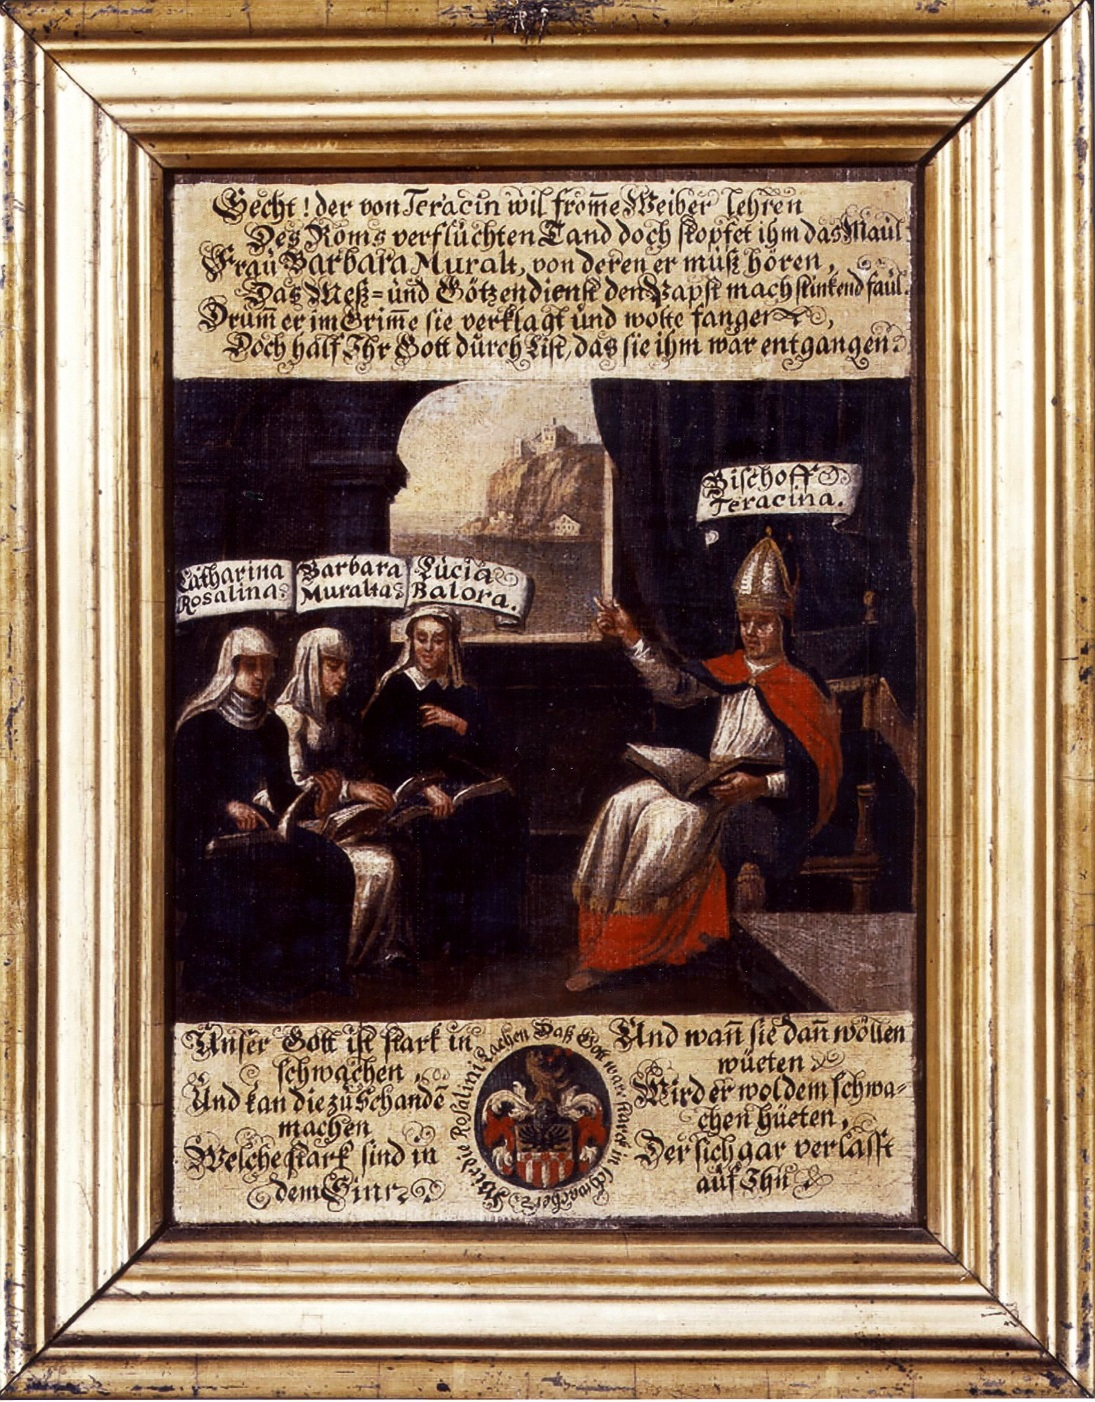 Secht! der von Teracin wil from̅e Weiber lehren
Des Roms verflüchten Tand doch stopfet ihm das Maul.
Frau Barbara Muralt, von deren er müß hören,
Das Meß= und Götzendienst den Papst mach stinkend faul.
Drum̅ er im Grim̅e sie verklagt und wolte fangen,
Doch half Ihr Gott durch List, das sie ihm war entgangen.
Bischoff
Teracina.
Catharina
Rosalina.
Barbara
Muralta.
Lucia
Balora.
Unser Gott ist stark in
schwachen,
Und kan die zu Schandē
machen
Welche stark sind in
dem Sin:
Würdie Rosalini Lachen Daß Gott ware starck in schwachen
Und wan̅ sie dan̅ wöllen
wüeten
Wird er wol dem schwa-
chen hüeten,
Der sich gar verlasst
auf Ihn